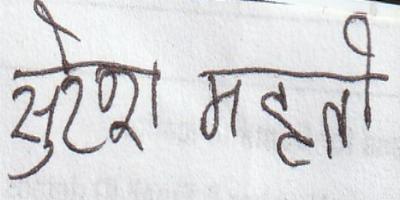 सुरेश महती